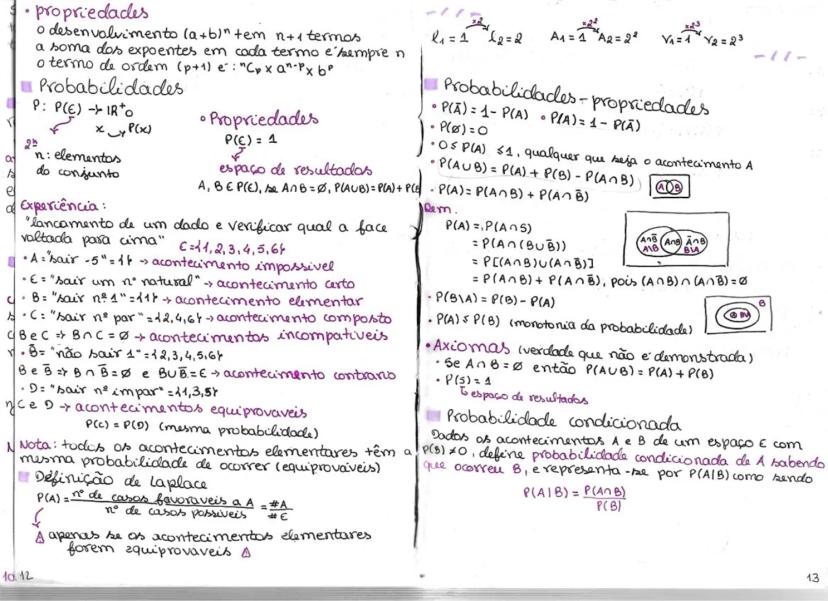 • propriedades
o desenvolvimento (a+b)ⁿ tem n+1 termos
a soma dos expoentes em cada termo é sempre n
o termo de ordem (p+1) é: ⁿCₚ x aⁿ⁻ᵖ x bᵖ
Probabilidades
P: P(E) → IR⁺₀
x ⤻ P(x)
2ⁿ
n: elementos
do conjunto
• Propriedades
P(E) = 1
espaço de resultados
A, B ∈ P(E), se A∩B=Ø, P(A∪B)=P(A)+P(B
Experiência:
"lançamento de um dado e verificar qual a face
voltada para cima" E={1,2,3,4,5,6}
• A="sair -5"={} → acontecimento impossível
• E="sair um nº natural" → acontecimento certo
• B="sair nº 1"={1} → acontecimento elementar
• C="sair nº par"={2,4,6} → acontecimento composto
B e C ⇒ B∩C=Ø → acontecimentos incompatíveis
• B̄="não sair 1"={2,3,4,5,6}
B e B̄ ⇒ B∩B̄=Ø e B∪B̄=E → acontecimento contrário
• D="sair nº ímpar"={1,3,5}
C e D → acontecimentos equiprováveis
P(C) = P(D) (mesma probabilidade)
Nota: todos os acontecimentos elementares têm a
mesma probabilidade de ocorrer (equiprováveis)
Definição de Laplace
P(A) = nº de casos favoráveis a A / nº de casos possíveis = #A / #E
⚠ apenas se os acontecimentos elementares
forem equiprováveis ⚠
12
l₁=1 x2 l₂=2 A₁=1 x2² A₂=2² V₁=1 x2³ V₂=2³
-//-
Probabilidades-propriedades
• P(Ā)=1-P(A) • P(A)=1-P(Ā)
• P(Ø)=0
• 0≤P(A)≤1, qualquer que seja o acontecimento A
• P(A∪B)=P(A)+P(B)-P(A∩B)
A B
• P(A)=P(A∩B)+P(A∩B̄)
Dem.
P(A)=P(A∩S)
=P(A∩(B∪B̄))
=P[(A∩B)∪(A∩B̄)]
=P(A∩B)+P(A∩B̄), pois (A∩B)∩(A∩B̄)=Ø
A∩B̄ A∩B Ā∩B
A\B B\A
• P(B\A)=P(B)-P(A)
• P(A)≤P(B) (monotonia da probabilidade)
B
• Axiomas (verdade que não é demonstrada)
• Se A∩B=Ø então P(A∪B)=P(A)+P(B)
• P(S)=1
↳ espaço de resultados
Probabilidade condicionada
Dados os acontecimentos A e B de um espaço E com
P(B)≠0, define probabilidade condicionada de A sabendo
que ocorreu B, e representa-se por P(A|B) como sendo
P(A|B) = P(A∩B) / P(B)
13